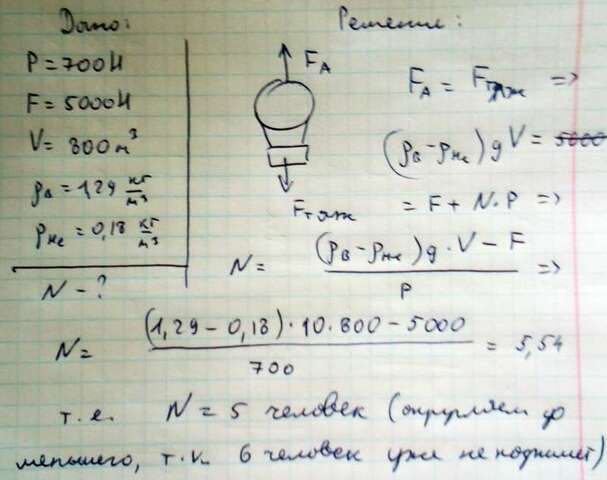 Дано:
Решение:
P = 700 Н
F = 5000 Н
V = 800 м³
ρв = 1,29 кг/м³
ρне = 0,18 кг/м³
N - ?
FА
Fтяж
FА = Fтяж =>
(ρв - ρне)gV = 5000
= F + N·P =>
N = (ρв - ρне)g·V - F / P =>
N = (1,29 - 0,18)·10·800 - 5000 / 700 = 5,54
т.е. N = 5 человек (округляем до
меньшего, т.к. 6 человек уже не поднимет)